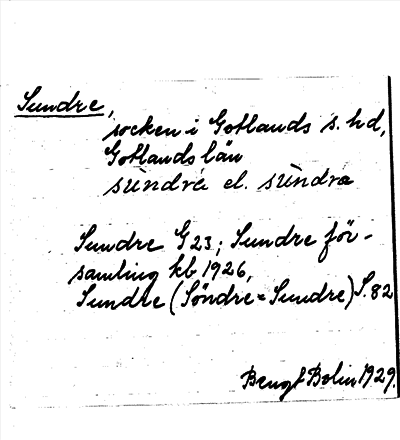 Sundre,
socken i Gotlands s. hd,
Gotlands län
sùndrá el. sùndra
Sundre G 23; Sundre för-
samling kb 1926,
Sundre (Söndre = Sundre) S. 82
Bengt Bolin 1929.